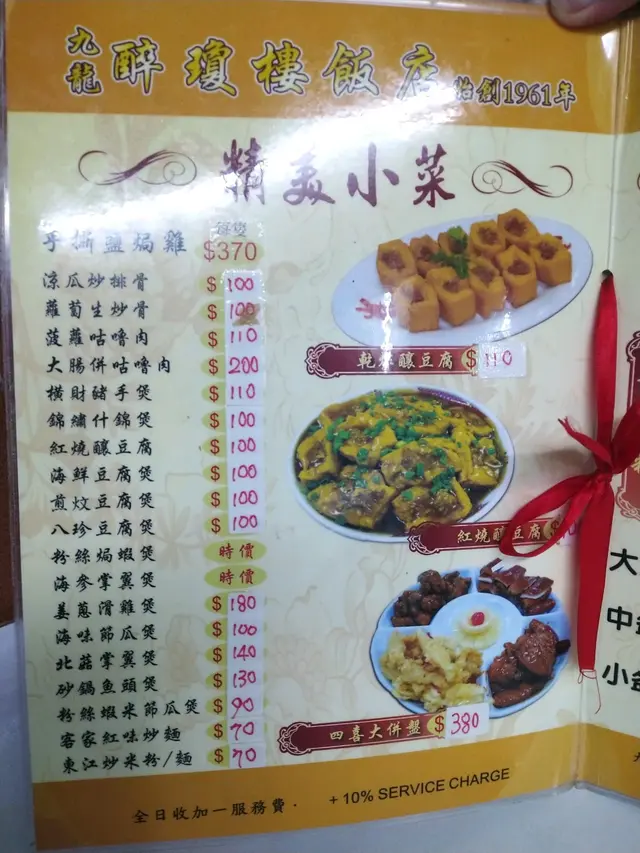 九龍 醉瓊樓飯店 始創1961年
精美小菜
手撕鹽焗雞 每隻 $370
涼瓜炒排骨 $100
蘿蔔生炒骨 $100
菠蘿咕嚕肉 $110
大腸併咕嚕肉 $200
橫財豬手煲 $110
錦繡什錦煲 $100
紅燒釀豆腐 $100
海鮮豆腐煲 $100
煎炆豆腐煲 $100
八珍豆腐煲 $100
粉絲焗蝦煲 時價
海參掌翼煲 時價
姜蔥滑雞煲 $180
海味節瓜煲 $100
北菇掌翼煲 $140
砂鍋魚頭煲 $130
粉絲蝦米節瓜煲 $90
客家紅味炒麵 $70
東江炒米粉/麵 $70
乾炸釀豆腐 $110
紅燒釀豆腐
四喜大併盤 $380
全日收加一服務費. +10% SERVICE CHARGE
大
中
小